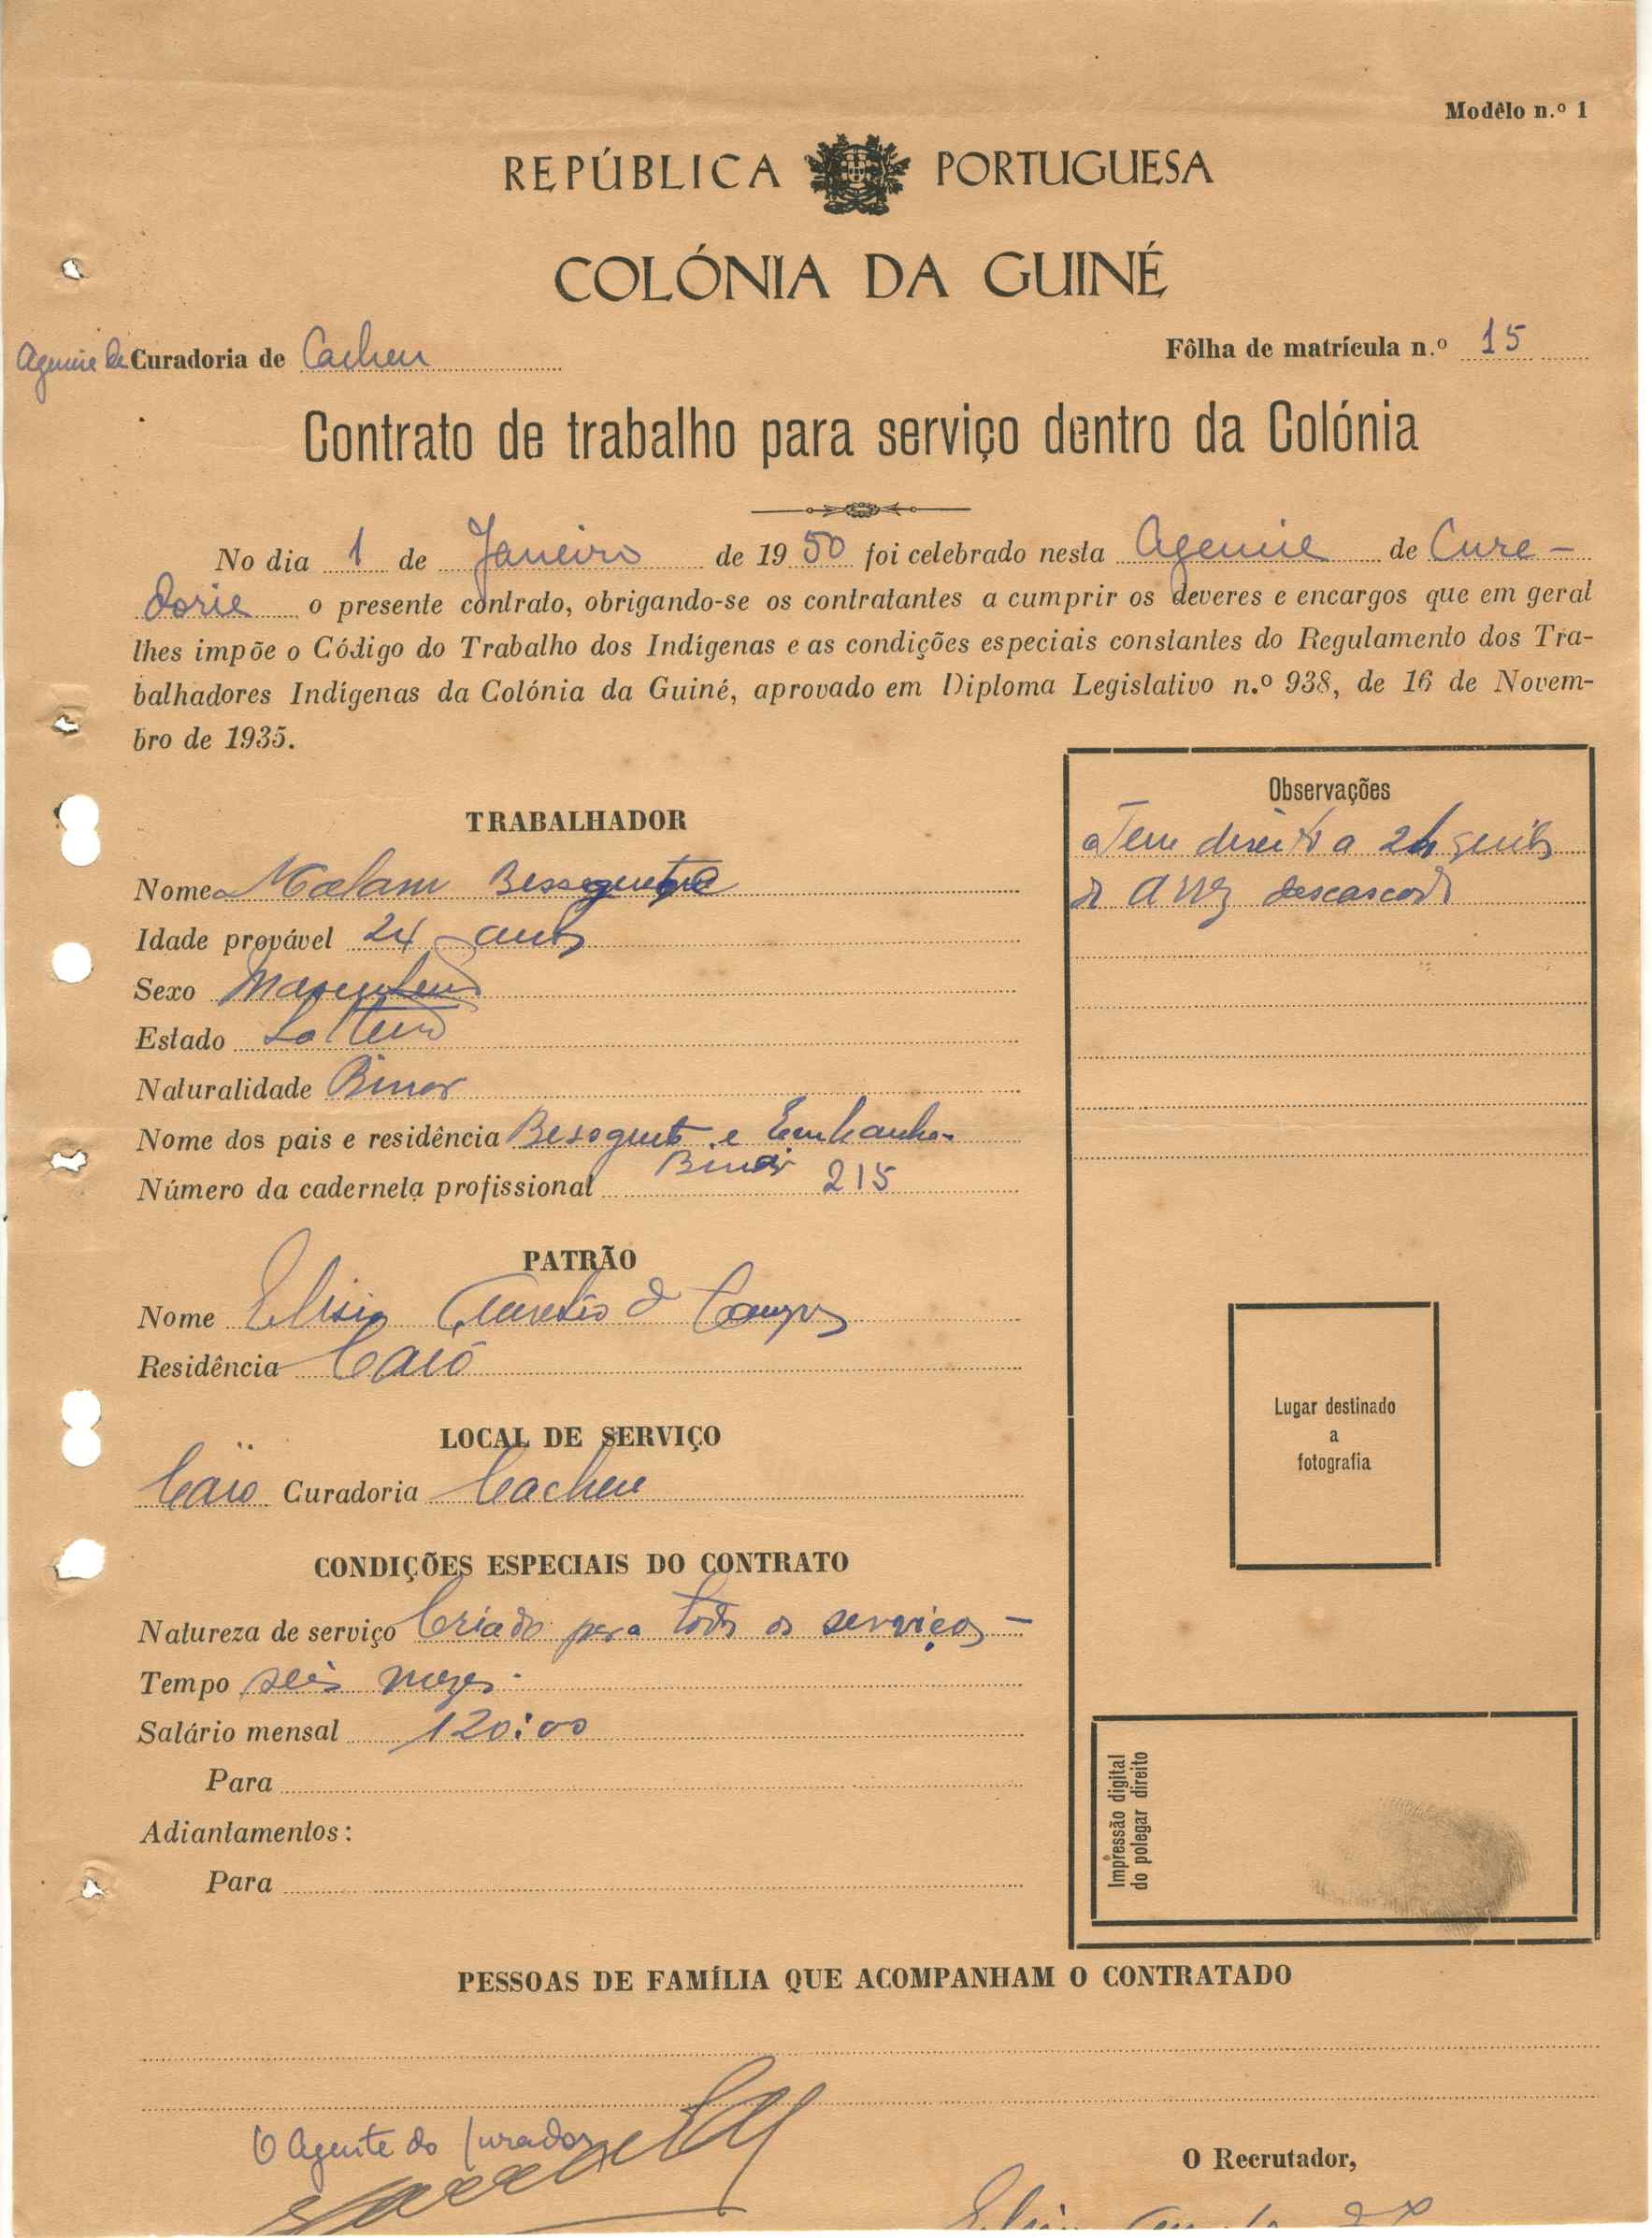 Modêlo n.º 1
REPÚBLICA PORTUGUESA
COLÓNIA DA GUINÉ
Agencia de Curadoria de Cacheu
Fôlha de matrícula n.º 15
Contrato de trabalho para serviço dentro da Colónia
No dia 1 de Janeiro de 1950 foi celebrado nesta Agencia de Cura-
doria o presente contrato, obrigando-se os contratantes a cumprir os deveres e encargos que em geral
lhes impõe o Código do Trabalho dos Indígenas e as condições especiais constantes do Regulamento dos Tra-
balhadores Indígenas da Colónia da Guiné, aprovado em Diploma Legislativo n.º 938, de 16 de Novem-
bro de 1935.
TRABALHADOR
Nome Malam
Idade provável 24 anos
Sexo Masculino
Estado Solteiro
Naturalidade Binar
Nome dos pais e residência e
Binar
Número da caderneta profissional 215
PATRÃO
Nome Elisio de Campos
Residência Caió
LOCAL DE SERVIÇO
Caió Curadoria Cacheu
CONDIÇÕES ESPECIAIS DO CONTRATO
Natureza de serviço Criado para todos os serviços —
Tempo seis mezes.
Salário mensal 120:00
Para
Adiantamentos:
Para
Observações
Tem direito a 24 quilos
de arroz descascado
Lugar destinado
a
fotografia
Impressão digital
do polegar direito
PESSOAS DE FAMÍLIA QUE ACOMPANHAM O CONTRATADO
O Agente do Curador
O Recrutador,